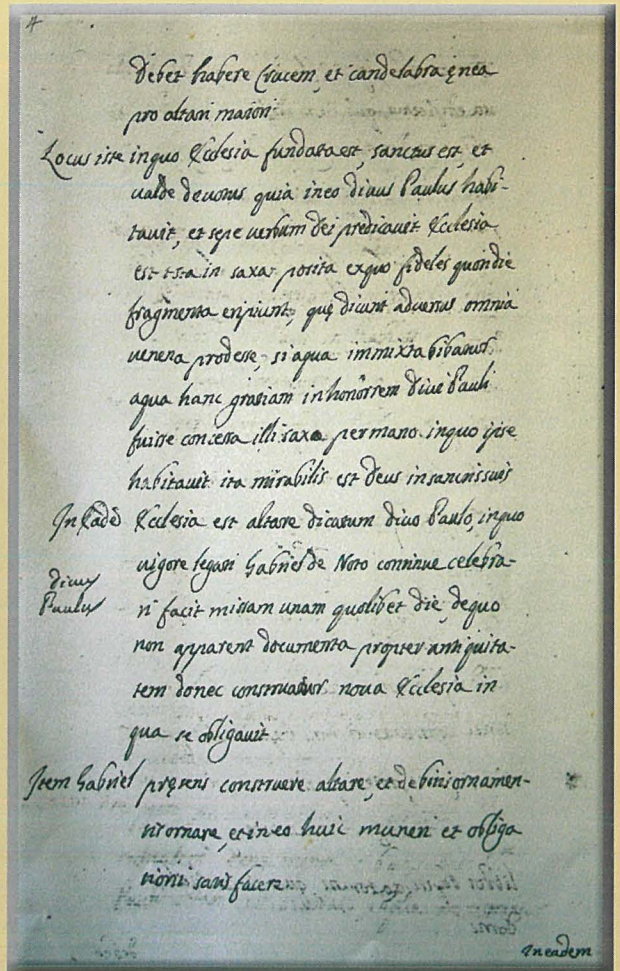 4
debet habere Crucem, et candelabra ęnea
pro altari maiori
Locus iste inquo Ecclesia fundata est, sanctus est, et
ualde deuotus quia ineo diuus Paulus habi-
tauit, et sepe uerbum dei predicauit Ecclesia
est ista in saxa posita exquo fideles quotidie
fragmenta eripiunt, quę dicunt aduersus omnia
uenena prodesse, si aqua immixta bibatur
aqua hanc gratiam inhonorrem diui Pauli
fuisse concessa illi saxo permano inquo ipse
habitauit ita mirabilis est Deus insanctissuis
In Eadē Ecclesia est altare dicatum diuo Paulo, inquo
uigore legati Gabriel de Noto continue celebra-
diuus
Paulus
ri facit missam unam quolibet die, dequo
non apparent documenta propter antiquita-
tem donec construatur noua Ecclesia in
qua se obligauit
Item Gabriel pręsens construere altare, et debitis ornamen-
tis ornare, et ineo huic muneri et obliga
tioni satis facere
Ineadem